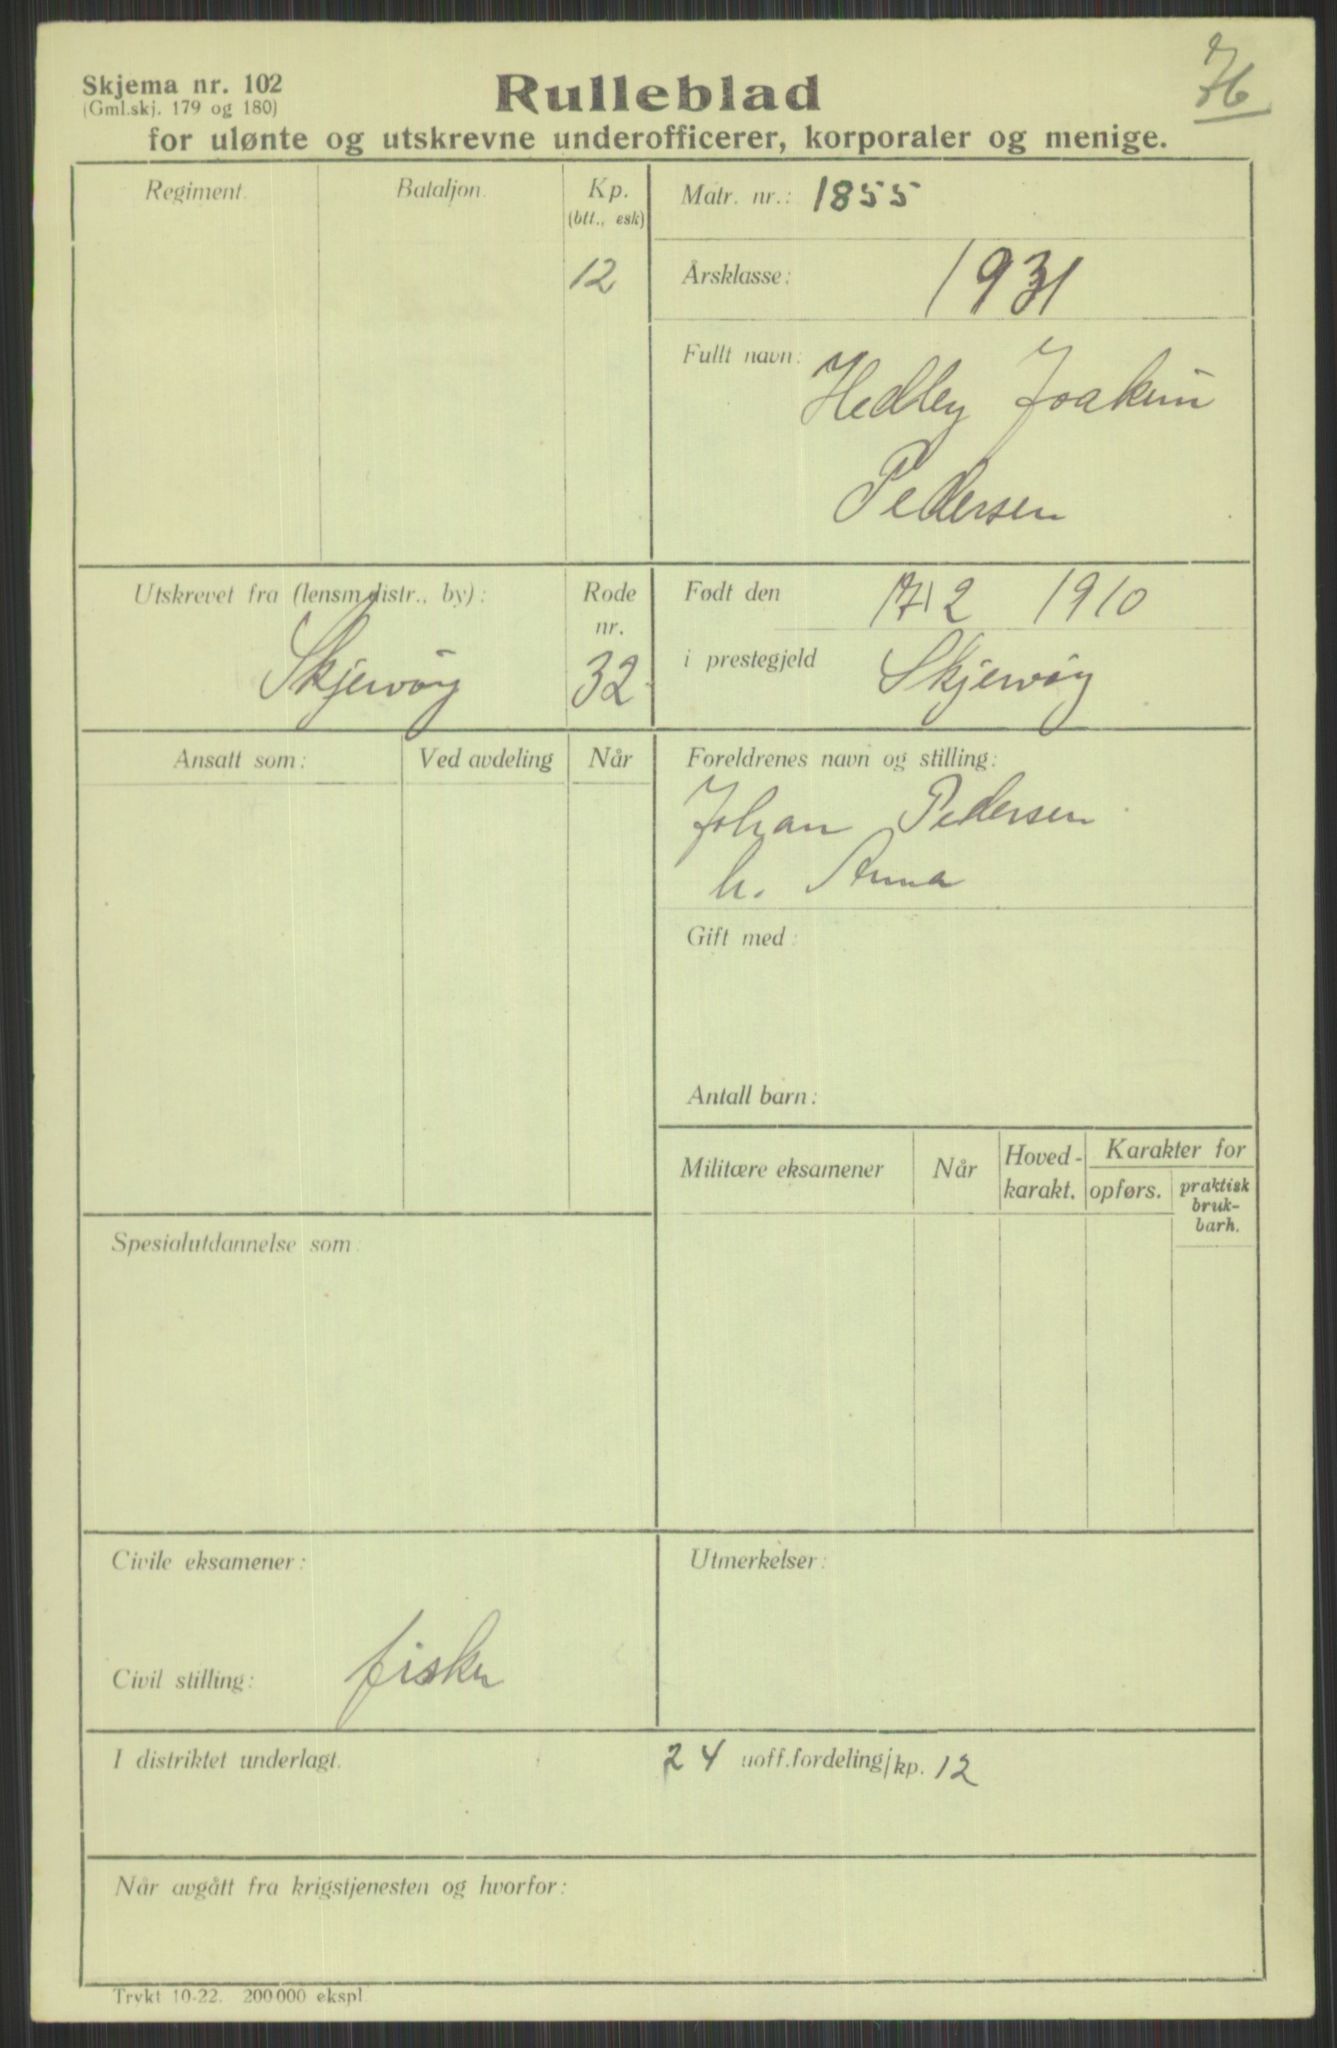 Skjema nr. 102
(Gml.skj. 179 og 180)
76
Rulleblad
for ulønte og utskrevne underofficerer, korporaler og menige.
Regiment.
Bataljon.
Kp.
(btt., esk)
12
Matr. nr.: 1855
Årsklasse: 1931
Fullt navn: Hedley Joakim
Pedersen
Utskrevet fra (lensm.distr., by):
Skjervøy
Rode
nr.
32
Født den 17/12 1910
i prestegjeld Skjervøy
Ansatt som:
Ved avdeling
Når
Foreldrenes navn og stilling:
Johan Pedersen
h. Anna
Gift med:
Antall barn:
Militære eksamener
Når
Hoved-
karakt.
Karakter for
opførs.
praktisk
bruk-
barh.
Spesialutdannelse som:
Civile eksamener:
Civil stilling: fisker
Utmerkelser:
I distriktet underlagt. 24 uoff.fordeling/kp. 12
Når avgått fra krigstjenesten og hvorfor:
Trykt 10-22. 200 000 ekspl.